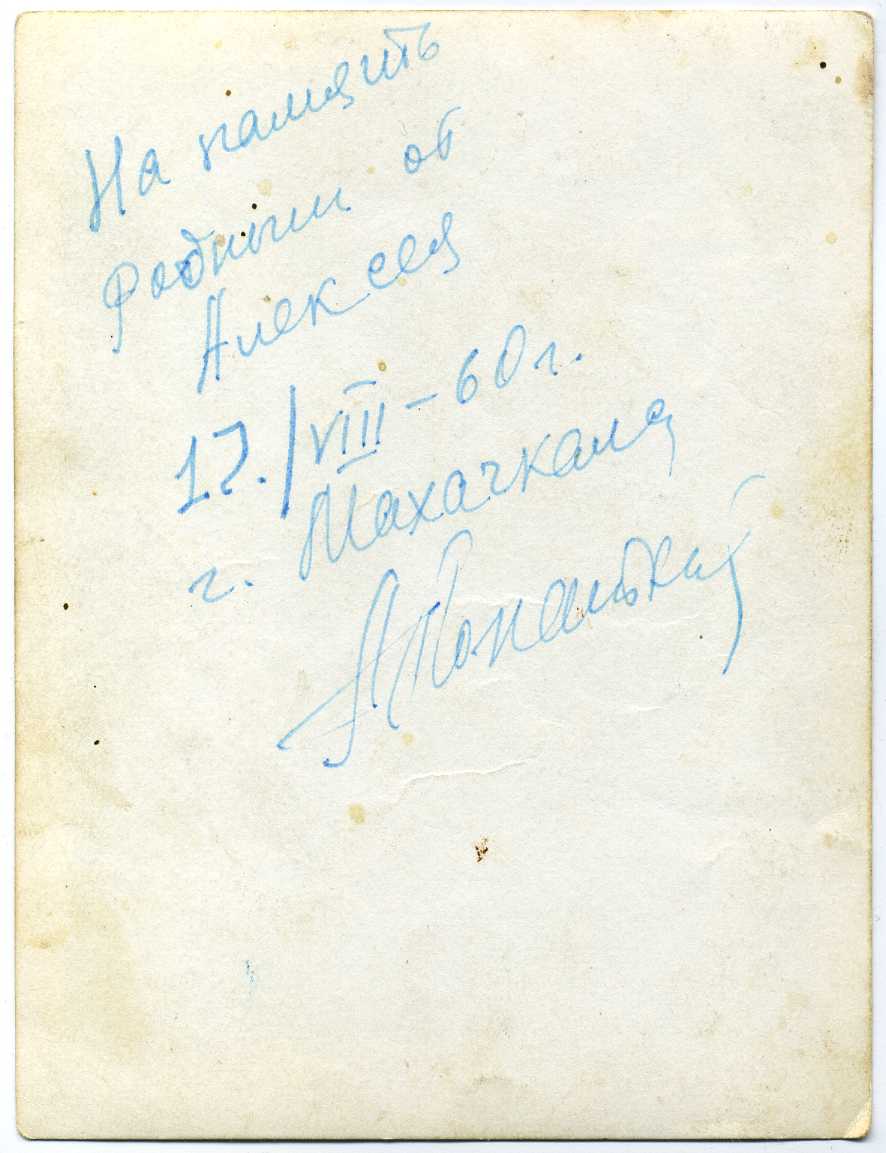 На память
родным от
Алексея
17./VIII-60г.
г. Махачкала